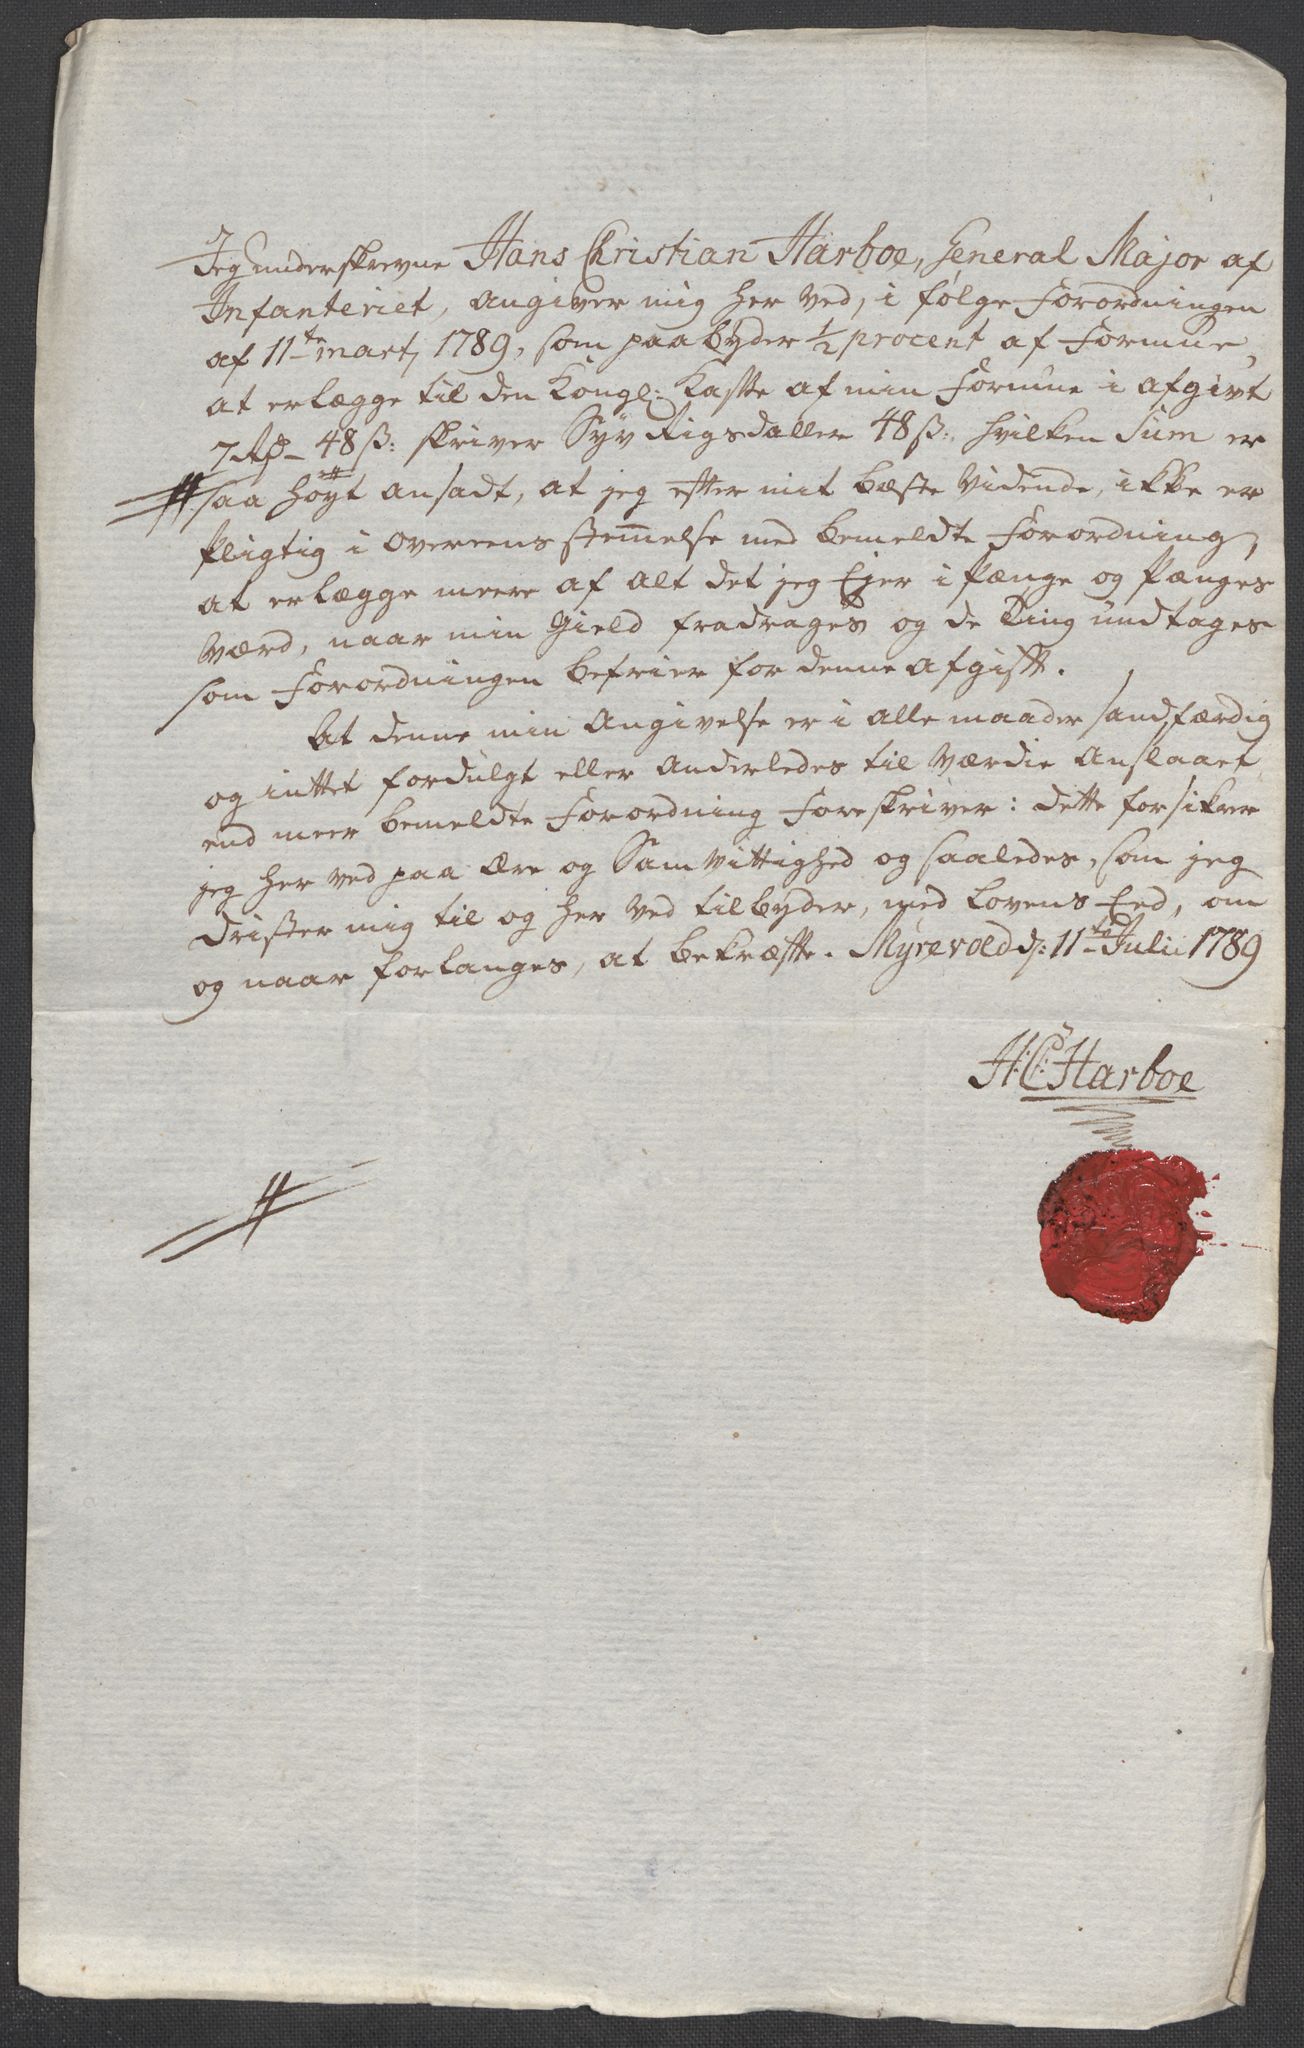 Jeg underskrevne Hans Christian Harboe, General Major af
Infanteriet, angiver mig her ved, i følge Forordningen
af 11te Martj 1789, som paabyder ½ procent af Formue,
at erlægge til den Kongl: Kasse af min Formue i afgivt
7 Rd – 48 ß: skriver Syv Rigsdaller 48 ß:, hvilken Sum er
saa høyt ansadt, at jeg efter mit beste Vidende, ikke er
pligtig i Overeensstemmelse med bemeldte Forordning,
at erlægge meere af alt det jeg Ejer i Penge og Penges
Værd, naar min Gield fradrages og de Ting undtages
som Forordningen befrier for denne afgift.
At denne min Angivelse er i alle maader sandfærdig
og inttet fordulgt eller Anderledes til Værdie Anslaaet
end meer bemeldte Forordning Foreskriver: dette forsikrer
jeg her ved paa Ære og Samvittighed og saaledes, som jeg
drister mig til og her ved tilbyder, med Lovens Eed, om
og naar forlanges, at bekræfte. Myrevold d: 11te Julii 1789
H: C: Harboe